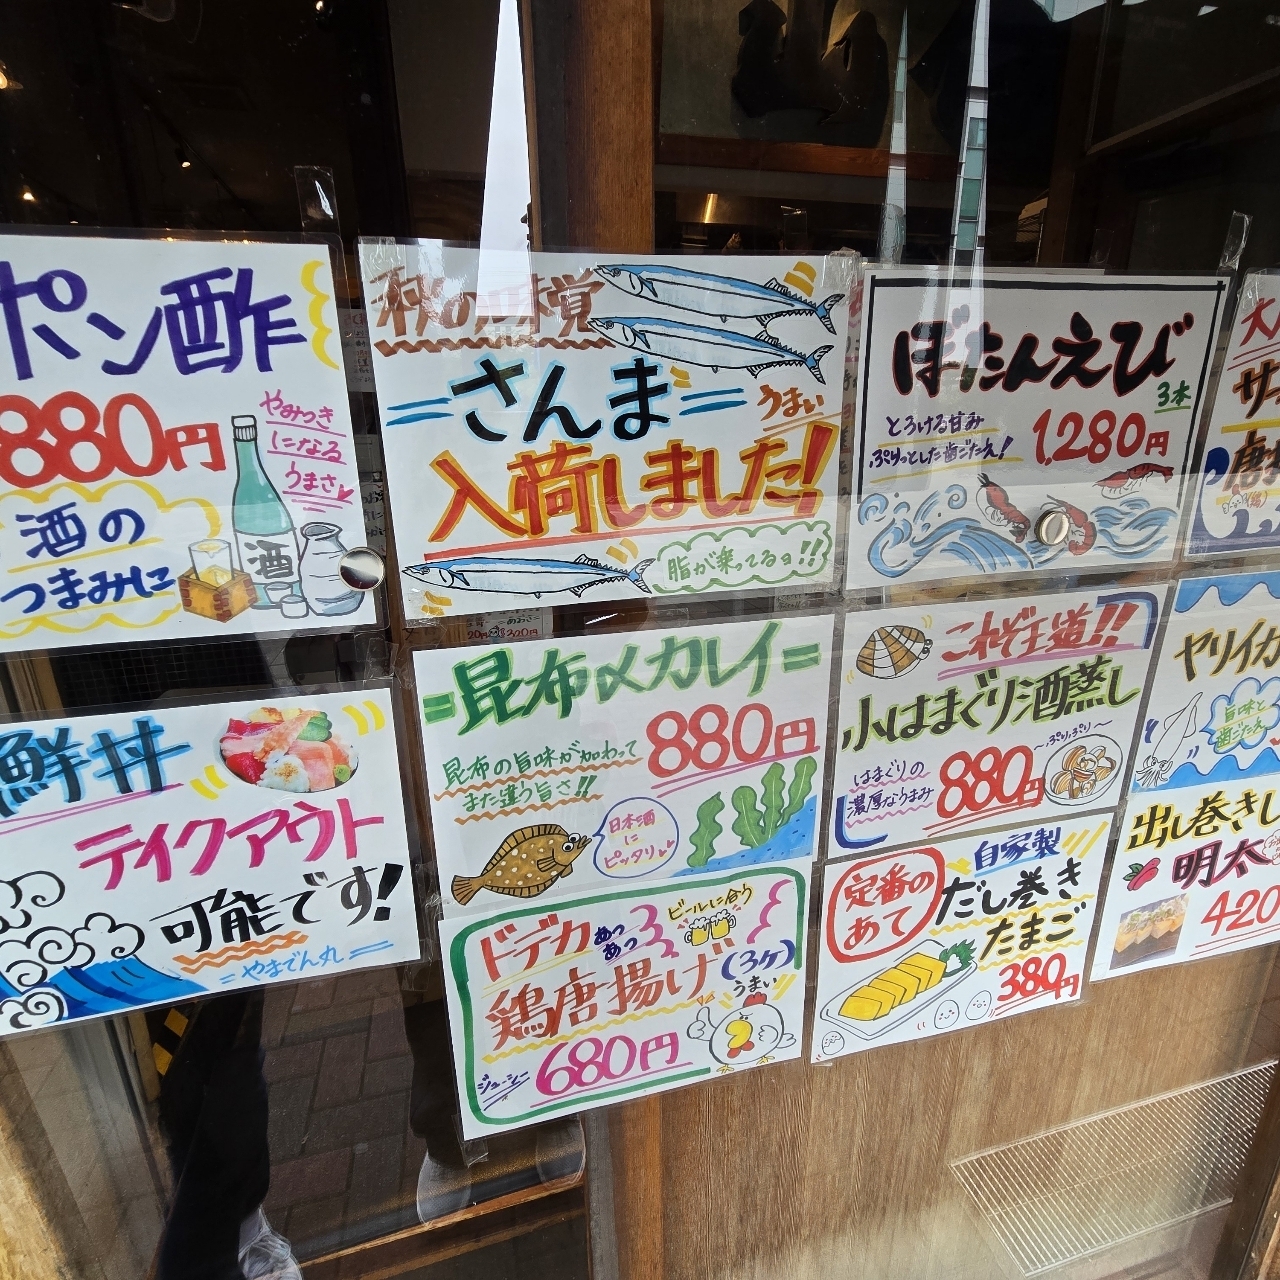 ポン酢
880円
やみつき
になる
うまさ
酒の
つまみに
酒
秋の味覚
さんま
うまい
入荷しました!
脂が乗ってるヨ!!
ぼたんえび
3本
とろける甘み
ぷりっとした歯ごたえ!
1,280円
鮮丼
テイクアウト
可能です!
やまでん丸
20円
320円
昆布〆カレイ
880円
昆布の旨味が加わって
また違う旨さ!!
日本酒
に
ピッタリ
これぞ王道!!
小はまぐり酒蒸し
はまぐりの
濃厚なうまみ
880円
〜ぷりぷり〜
ヤリイカ
旨味と
歯ごたえ
ドデカ
あっ
あっ
ビールに合う
鶏唐揚げ(3ヶ)
うまい
ジューシー
680円
定番の
あて
自家製
だし巻き
たまご
380円
出し巻きし
明太
420